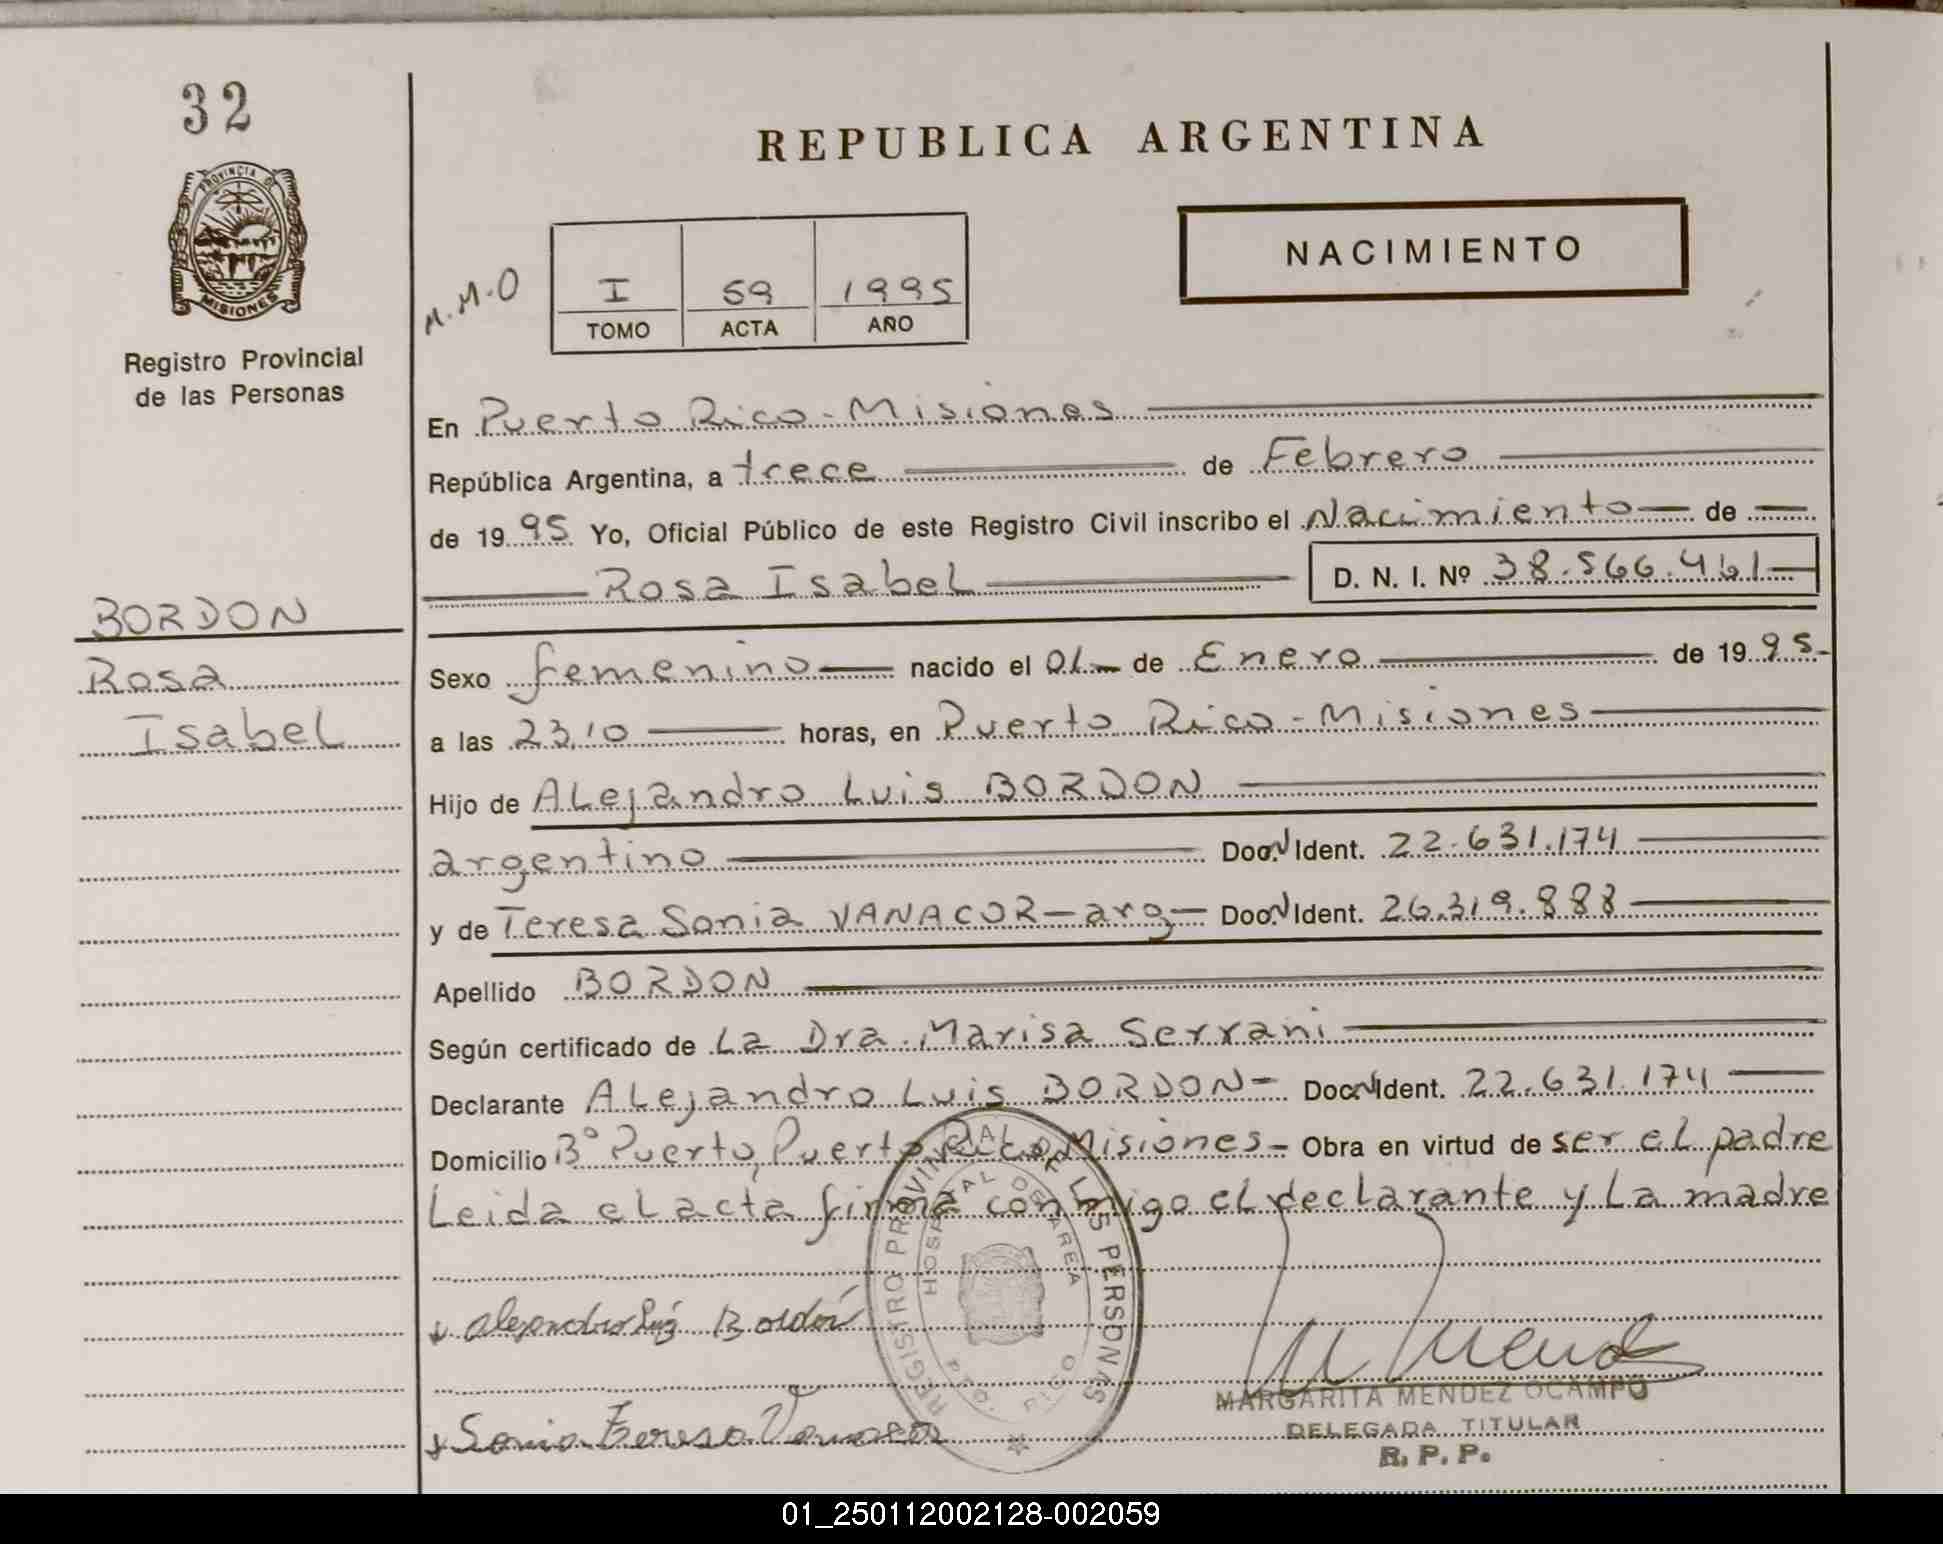 32
PROVINCIA DE
MISIONES
Registro Provincial
de las Personas
REPUBLICA ARGENTINA
NACIMIENTO
M.M.O
I 59 1995
TOMO ACTA AÑO
En Puerto Rico - Misiones
República Argentina, a trece de Febrero
de 19 95 Yo, Oficial Público de este Registro Civil inscribo el Nacimiento de
Rosa Isabel D. N. I. Nº 38.566.461
BORDON
Rosa
Isabel
Sexo femenino nacido el 01 de Enero de 19 95
a las 23,10 horas, en Puerto Rico - Misiones
Hijo de Alejandro Luis BORDON
argentino Doc. N Ident. 22.631.174
y de Teresa Sonia VANACOR - arg - Doc. N Ident. 26.319.888
Apellido BORDON
Según certificado de La Dra. Marisa Serrani
Declarante Alejandro Luis BORDON - Doc. N Ident. 22.631.174
Domicilio Bº Puerto, Puerto Rico Misiones - Obra en virtud de ser el padre
Leida el acta firma conmigo el declarante y la madre
REGISTRO PROVINCIAL DE LAS PERSONAS
HOSPITAL DE AREA
PTO. RICO
Alejandro Luis Bordón
Sonia Teresa Vanacor
M Mend
MARGARITA MENDEZ OCAMPO
DELEGADA TITULAR
R. P. P.
01_250112002128-002059